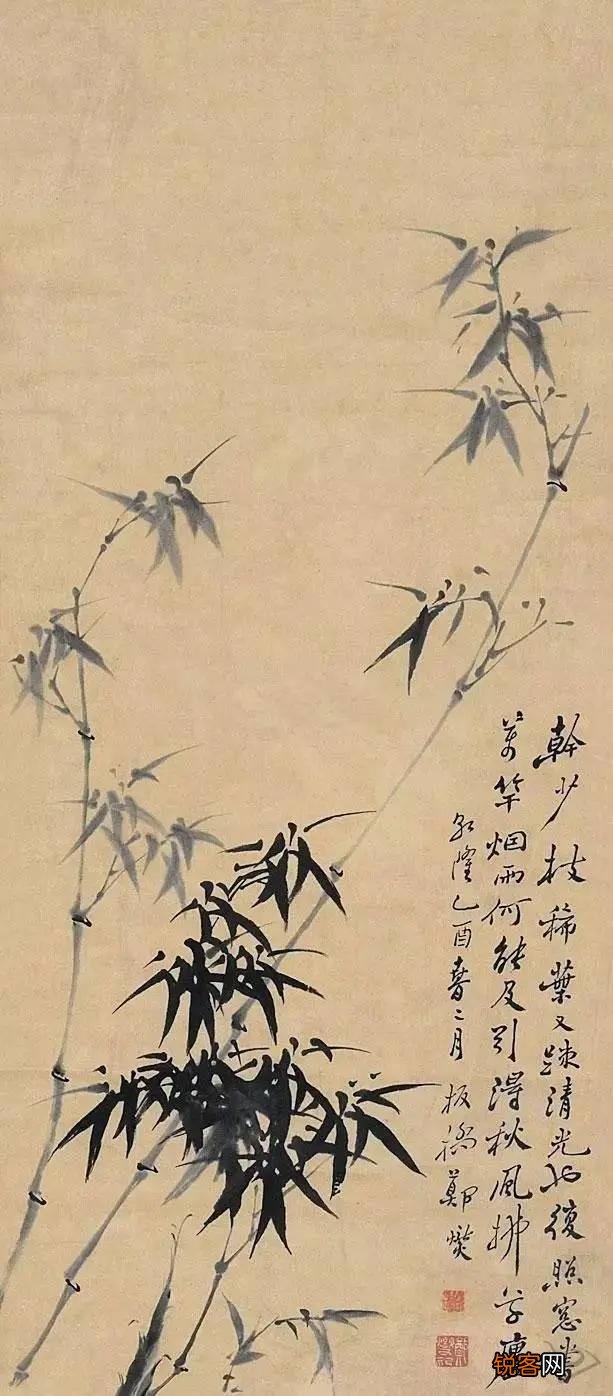 幹少枝稀葉又疎清光也復照窓書
萬竿烟雨何能及引得秋風拂草廬
乾隆乙酉春二月板橋鄭燮
锐客网